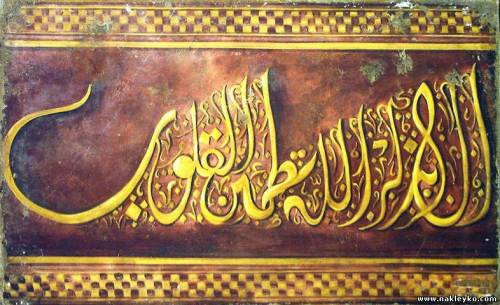 الا بذكر الله تطمئن القلوب
www.nakleyko.com